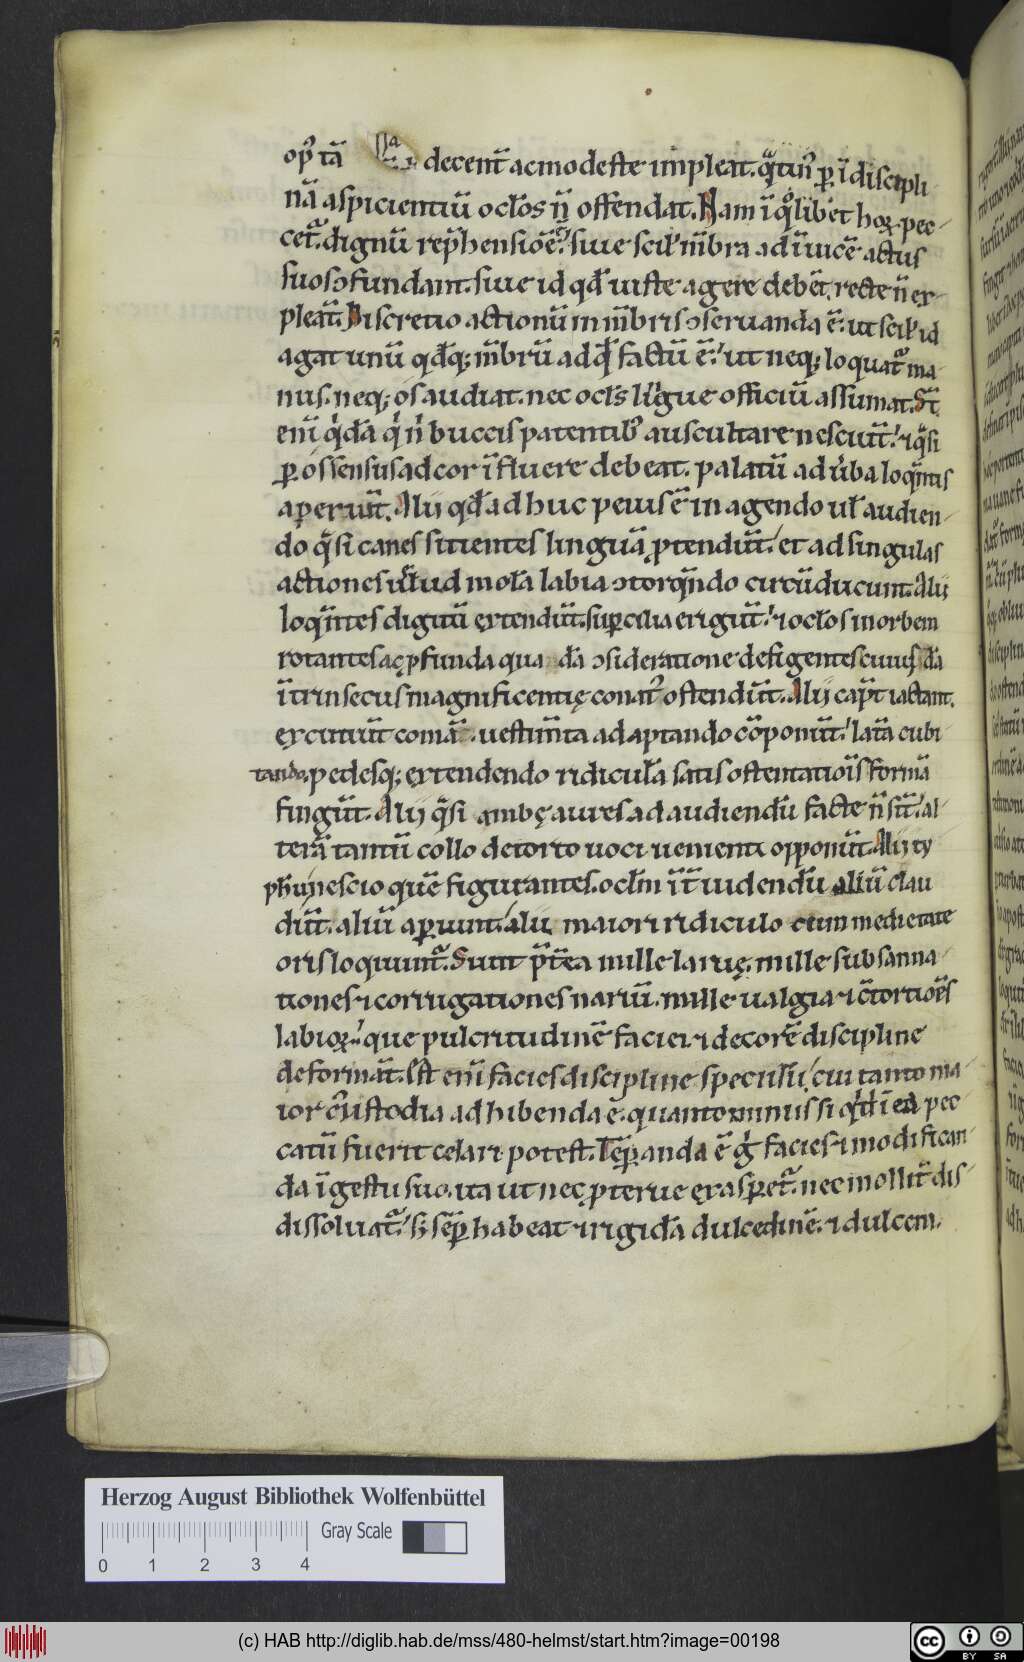 op᷒ tā decent̄ ac modeste impleat. q̄tin᷒ ꝑ ī discipli
nā aspicientiū ocl̄os n̄ offendat. Nam ī qͦlibet hoꝝ pec-
cet᷑. dignū rep̄hensiōē. siue scil' m̄bra ad īuicē actus
suos ↄfundant. siue id qd̄ uiste agere debēt, recte n̄ ex-
pleāt. Discretio actionū in m̄bris ↄseruanda ē. ut scil' id
agat unū qd̄q; m̄brū ad qd̄ factū ē. ut neq; loquat᷑ ma-
nus. neq; os audiat. nec ocl̄s līgue officiū assumat. St̄
eni q'dā q' n' buccis patentib᷒ auscultare nesciūt. ⁊ q̄si
ꝑ os sensus ad cor īfluere debeat. palatū ad ūba loq̄ntis
aperiūt. Alii qd̄ ad huc peius ē in agendo ul̄ audien-
do q̄si canes sitientes linguā ꝓtendūt. et ad singulas
actiones uelud mola labia ↄtorq̄ndo circūducunt. Alii
loq̄ntes digitū extendūt. suꝑcilia erigūt. ⁊ ocl̄os in orbem
rotantes aç ꝓfunda quadā ↄsideratione defigentes cuiusdā
ītrinsecus magnificentię conat᷒ ostendūt. Alii cap̄t iactant.
excutiūt comā. uestim̄ta ad aptando cōponūt. latā cubi
tando. pedesq; extendendo ridiculā satis ostentatiōis formā
fingūt. Alii q̄si ambę aures ad audiendū facte n̄ sīt. al-
terā tantū collo detorto uoci uenienti opponūt. Alii ty
ph̄ui nescio quē figurantes. ocl̄m īt̄ uidendū aliū clau
dūt. aliū aꝑiunt. alii maiori ridiculo cum medietate
oris loquunt᷑. Sunt p̄tea mille laruę. mille subsanna
tiones ⁊ corrugationes nariū. mille ualgia ⁊ ↄtortiōes
labioꝝ. que pulcritudinē faciei. ⁊ decorē discipline
deformāt. Est enī facies discipline speculū, cui tanto ma-
ior custodia adhibenda ē. quanto minus si qd̄ ī ea pec-
catū fuerit celari potest. Teꝑanda ē g' facies ⁊ modifican-
da ī gestu suo. ita ut nec ꝓterue exasꝑet᷑. nec mollit' dis-
dissoluat᷑. s; seꝑ habeat ⁊ rigidā dulcedinē. ⁊ dulcem
Herzog August Bibliothek Wolfenbüttel
Gray Scale
0 1 2 3 4
(c) HAB http://diglib.hab.de/mss/480-helmst/start.htm?image=00198
cc BY SA